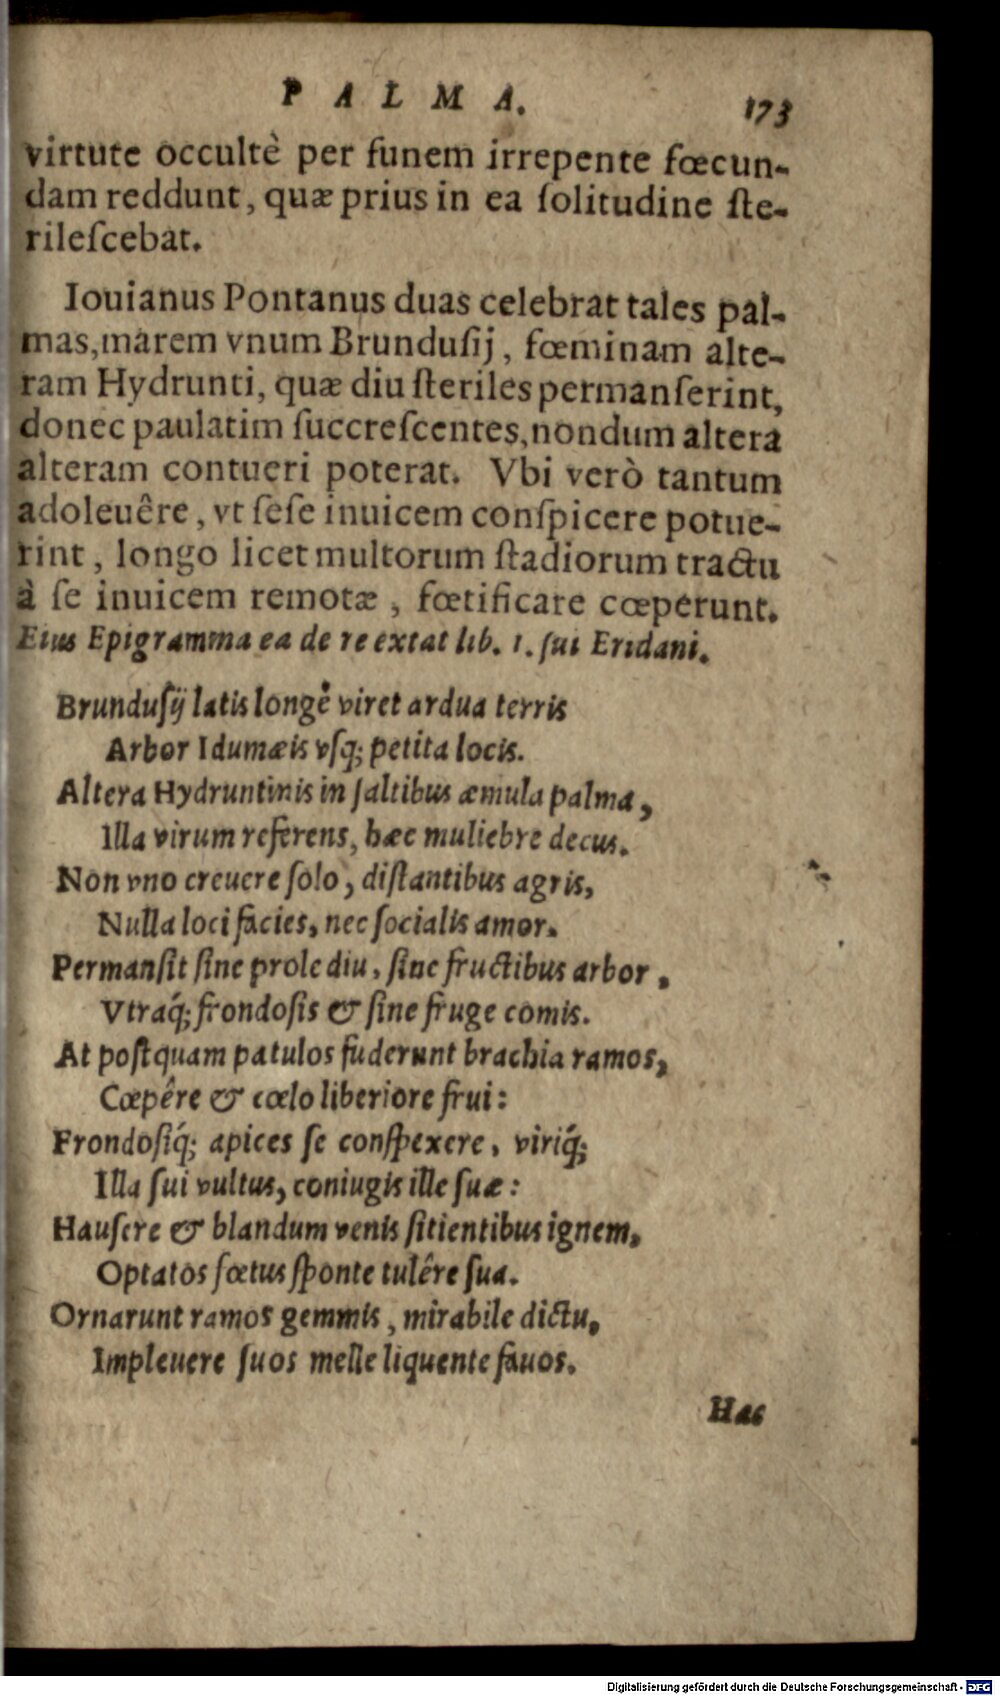 PALMA. 173
virtute occultè per funem irrepente fœcun-
dam reddunt, quæ prius in ea ſolitudine ſte-
rileſcebat.
Iouianus Pontanus duas celebrat tales pal-
mas, marem vnum Brunduſij, fœminam alte-
ram Hydrunti, quæ diu ſteriles permanſerint,
donec paulatim ſuccreſcentes, nondum altera
alteram contueri poterat. Vbi verò tantum
adoleuêre, vt ſeſe inuicem conſpicere potue-
rint, longo licet multorum ſtadiorum tractu
à ſe inuicem remotæ, fœtificare cœperunt.
Eius Epigramma ea de re extat lib. 1. ſui Eridani.
Brunduſij latis longè viret ardua terris
Arbor Idumæis vſq; petita locis.
Altera Hydruntinis in ſaltibus æmula palma,
Illa virum referens, hæc muliebre decus.
Non vno creuere ſolo, diſtantibus agris,
Nulla loci facies, nec ſocialis amor.
Permanſit ſine prole diu, ſine fructibus arbor,
Vtraq́; frondoſis & ſine fruge comis.
At poſtquam patulos fuderunt brachia ramos,
Cœpêre & cœlo liberiore frui:
Frondoſiq́; apices ſe conſpexere, viriq́;
Illa ſui vultus, coniugis ille ſuæ:
Hauſere & blandum venis ſitientibus ignem,
Optatos fœtus ſponte tulêre ſua.
Ornarunt ramos gemmis, mirabile dictu,
Impleuere ſuos melle liquente fauos.
Has
Digitalisierung gefördert durch die Deutsche Forschungsgemeinschaft - DFG